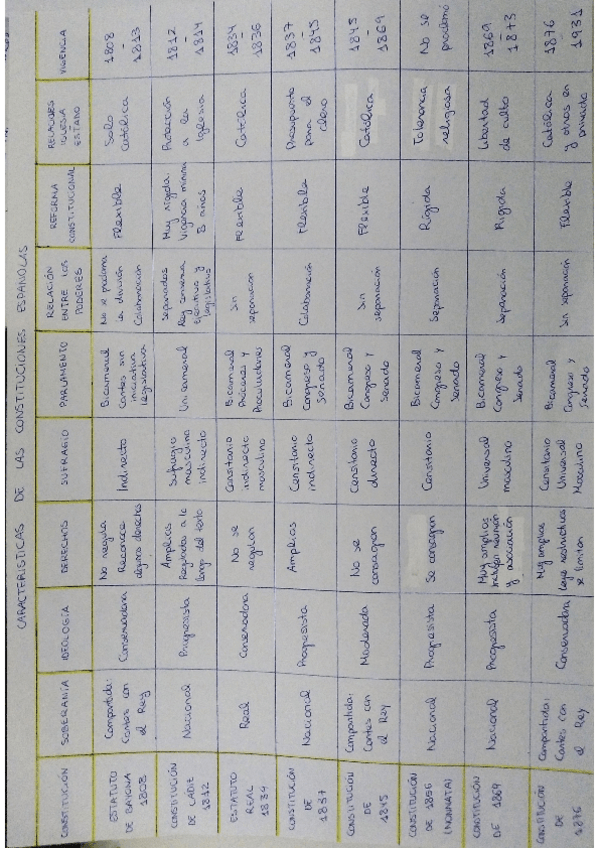 CARACTERÍSTICAS DE LAS CONSTITUCIONES ESPAÑOLAS
CONSTITUCIÓN SOBERANÍA IDEOLOGÍA DERECHOS SUFRAGIO PARLAMENTO RELACIÓN ENTRE LOS PODERES REFORMA CONSTITUCIONAL RELACIONES IGLESIA ESTADO VIGENCIA
ESTATUTO DE BAYONA 1808
Compartida: Cortes con el Rey
Conservadora
No regula Reconoce algunos derechos
Indirecto
Bicameral Cortes sin iniciativa legislativa
No se proclama la división Colaboración
Flexible
Solo Católica
1808 - 1813
CONSTITUCIÓN DE CÁDIZ 1812
Nacional
Progresista
Amplios Regulados a lo largo del texto
Sufragio masculino indirecto
Unicameral
Separados Rey conserva Ejecutivo y legislativo
Muy rígida. Vigencia mínima 8 años
Protección a la Iglesia
1812 - 1814
ESTATUTO REAL 1834
Real
Conservadora
No se regulan
Censitario indirecto masculino
Bicameral Próceres y Procuradores
Sin separación
Flexible
Católica
1834 - 1836
CONSTITUCIÓN DE 1837
Nacional
Progresista
Amplios
Censitario indirecto
Bicameral Congreso y Senado
Colaboración
Flexible
Presupuesto para el clero
1837 - 1845
CONSTITUCIÓN DE 1845
Compartida: Cortes con el Rey
Moderada
No se consagran
Censitario directo
Bicameral Congreso y Senado
Sin separación
Flexible
Católica
1845 - 1869
CONSTITUCIÓN DE 1856 (NONNATA)
Nacional
Progresista
Se consagran
Censitario
Bicameral Congreso y Senado
Separación
Rígida
Tolerancia religiosa
No se proclamó
CONSTITUCIÓN DE 1869
Nacional
Progresista
Muy amplios reunión y asociación
Universal masculino
Bicameral Congreso y Senado
Separación
Rígida
Libertad de culto
1869 - 1873
CONSTITUCIÓN DE 1876
Compartida: Cortes con el Rey
Conservadora
Muy amplios Leyes restrictivas se limitan
Censitario Universal Masculino
Bicameral Congreso y Senado
Sin separación
Flexible
Católica y otros en privado
1876 - 1931